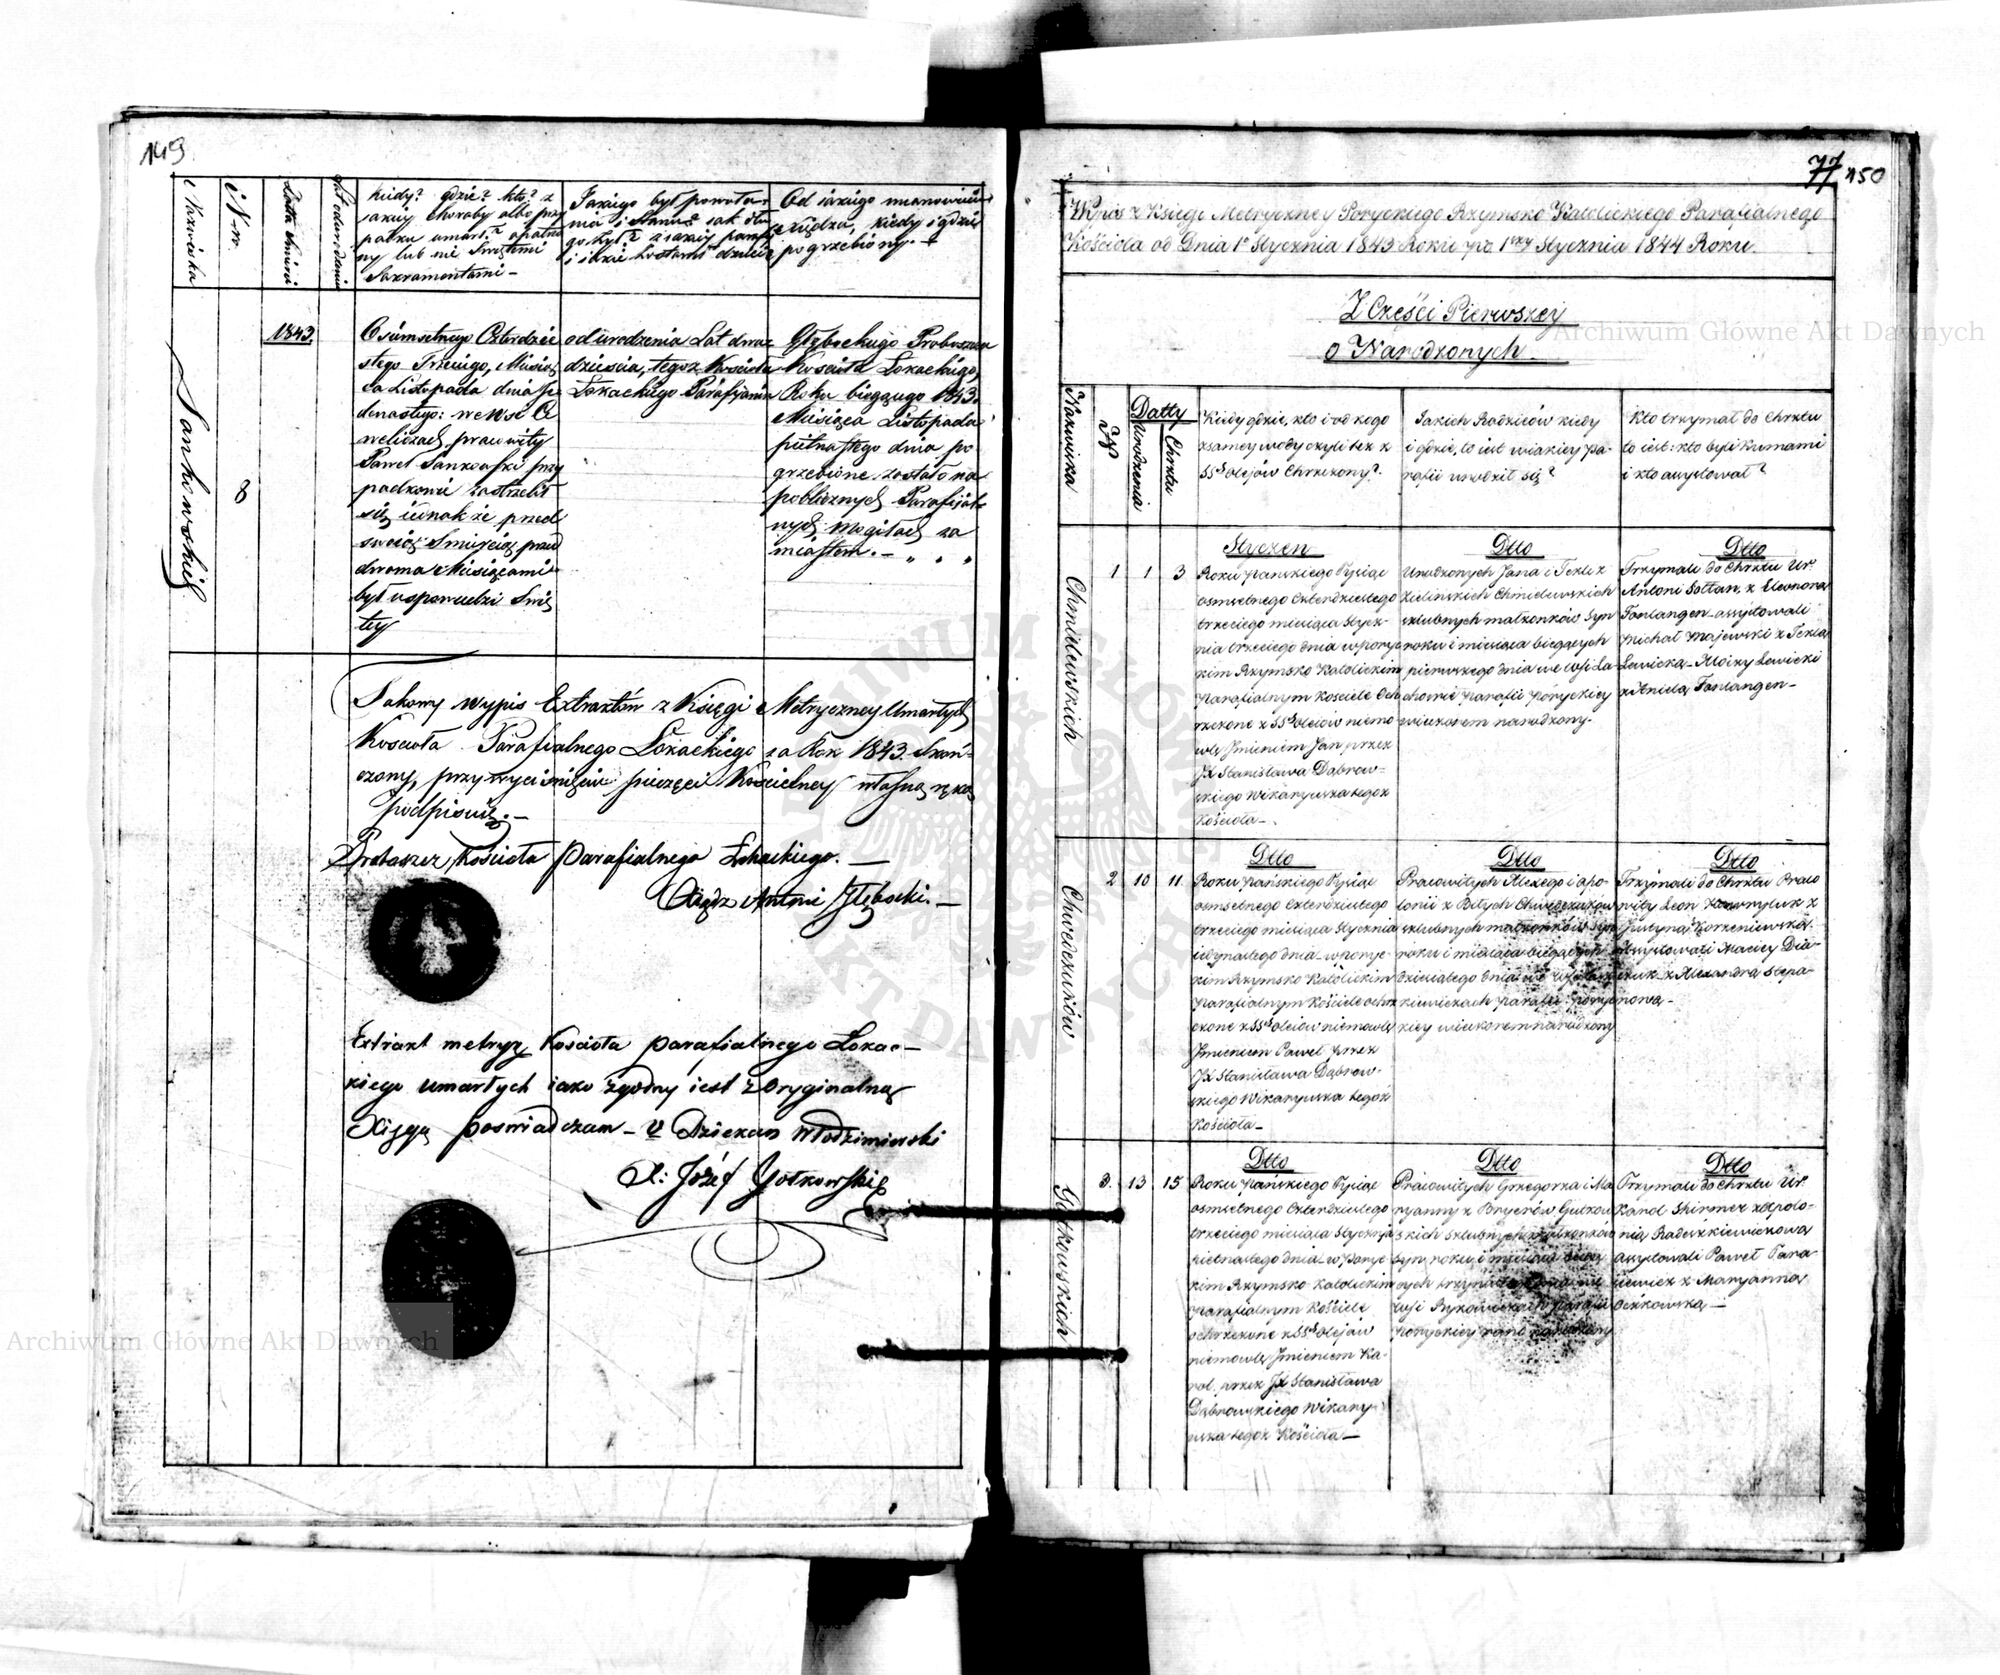 149
Nazwiska
Nr.
Datta śmierci
kiedy? gdzie? kto? z
jakiey choroby albo przy
padku umarł? opatrzo
ny lub nie Świętemi
Sakramentami -
Jakiego był powoła-
nia i stanu? jak dłu
go żył? z jakiey parafii
i jakie zostawił dzieci?
Od jakiego mianowicie
Xiędza, kiedy i gdzie
pogrzebiony. -
Sankowskich
8
1843.
Osiumsetnego Czterdzie
stego Trzeciego, Miesią
ca Listopada dnia Je
denastego: we Wsi
pracowity
Paweł Sankowski przy
padkowie zastrzelił
się, iednak że przed
swoią Śmiercią przed
dwoma Miesięcami
był u spowiedzi Świę
tey
od urodzenia Lat dwa
dzieścia, tegoż Kościoła
Łokackiego Parafijanin
Głębockiego Proboszcza
Kościoła Łokackiego,
Roku bieżącego 1843.
Miesiąca Listopada
piętnastego dnia po
grzebione zostało na
poblicznych Parafijal
nych mogiłach za
miastem. - " " "
Takowy wypis Extraktów z Księgi Metryczney Umarłych
Kościoła Parafialnego Łokackiego za Rok 1843. Skoń-
czony, przy wyciśnięciu pieczęci Kościelney własną ręką
podpisuię. -
Proboszcz Kościoła Parafialnego Łokackiego. -
Xiądz Antoni Głębocki. -
Extrakt metryk Kościoła parafialnego Łokac-
kiego umarłych iako zgodny iest z Oryginalną
Xięgą poświadczam - V Dziekan Włodzimirski
X: Józef Gołkowski
77 150
Wypis z Księgi Metryczney Poryckiego Rzymsko Katolickiego Parafialnego
Kościoła od Dnia 1o Stycznia 1843 Roku po 1wszy Stycznia 1844 Roku.
Z Części Pierwszey
o Narodzonych
Nazwiska
N
Datty
Urodzenia
Chrztu
Kiedy gdzie, kto i od kogo
z samey wody czyli też z
SSch olejów Chrzczony?
Jakich Rodziców kiedy
i gdzie, to iest w iakiey pa-
rafii urodził się?
Kto trzymał do Chrztu
to iest: kto byli Kumami
i kto assystował?
Chmielewskich
1 1 3
Styczen
Roku Pańskiego Tysiąc
osmsetnego Czterdziestego
trzeciego miesiąca Stycz-
nia trzeciego dnia w Poryc
kim Rzymsko Katolickim
Parafialnym Kościele Och
rzczone z SSch oleiów niemo
wlę Imieniem Jan przez
JX Stanisława Dąbrow-
skiego Wikaryusza tegoż
Kościoła -
Dtto
Urodzonych Jana i Tekli z
Zielinskich Chmielewskich
szlubnych małżonków syn
roku i miesiąca bieżących
pierwszego dnia we Wsi La
chowie parafii Poryckiey
wieczorem narodzony.
Dtto
Trzymali do Chrztu Ur.
Antoni Sołtan, z Eleonorą
Fanlangen - assystowali
Michał Majewski z Teklą
Lewicką - Aloizy Lewicki
z Anielą Fanlangen -
Chwedczuków
2 10 11
Dtto
Roku Pańskiego Tysiąc
osmsetnego Czterdziestego
trzeciego miesiąca Stycznia
iedynastego dnia w Poryc-
kim Rzymsko Katolickim
Parafialnym Kościele ochrz
czone z SSch oleiów niemowlę
Imieniem Paweł przez
JX Stanisława Dąbrow-
skiego Wikaryusza tegoż
Kościoła -
Dtto
Pracowitych Alexego i Apo-
lonii z Biłych Chwedczuków
szlubnych małżonków syn
roku i miesiąca bieżących
dziesiątego dnia we Wsi
parafii Poryc
kiey wieczorem narodzony
Dtto
Trzymali do Chrztu Praco
wity Leon z
Justyną Korzeniewską
assystowali Maciey Dia-
czuk z Alexandrą Stepa-
nową -
Gutkowskich
3. 13 15
Dtto
Roku Pańskiego Tysiąc
osmsetnego Czterdziestego
trzeciego miesiąca Stycznia
piętnastego dnia w Poryc
kim Rzymsko Katolickim
Parafialnym Kościele
ochrzczone z SSch olejów
niemowlę Imieniem Ka-
rol, przez JX Stanisława
Dąbrowskiego Wikary
usza tegoż Kościoła -
Dtto
Pracowitych Grzegorza i Ma
ryanny z Bryerów Gutkow
skich szlubnych małżonków
syn, roku i miesiąca bieżą
cych trzynastego dnia we
Wsi parafii
Poryckiey rano narodzony
Dtto
Trzymali do Chrztu Ur.
Karol Shirmer z Apolo-
nią Radeszkiewiczową
assystowali Paweł Tara
siewicz z Maryanną
Ochkowską -
Archiwum Główne Akt Dawnych
Archiwum Główne Akt Dawnych
ARCHIWUM GŁÓWNE AKT DAWNYCH